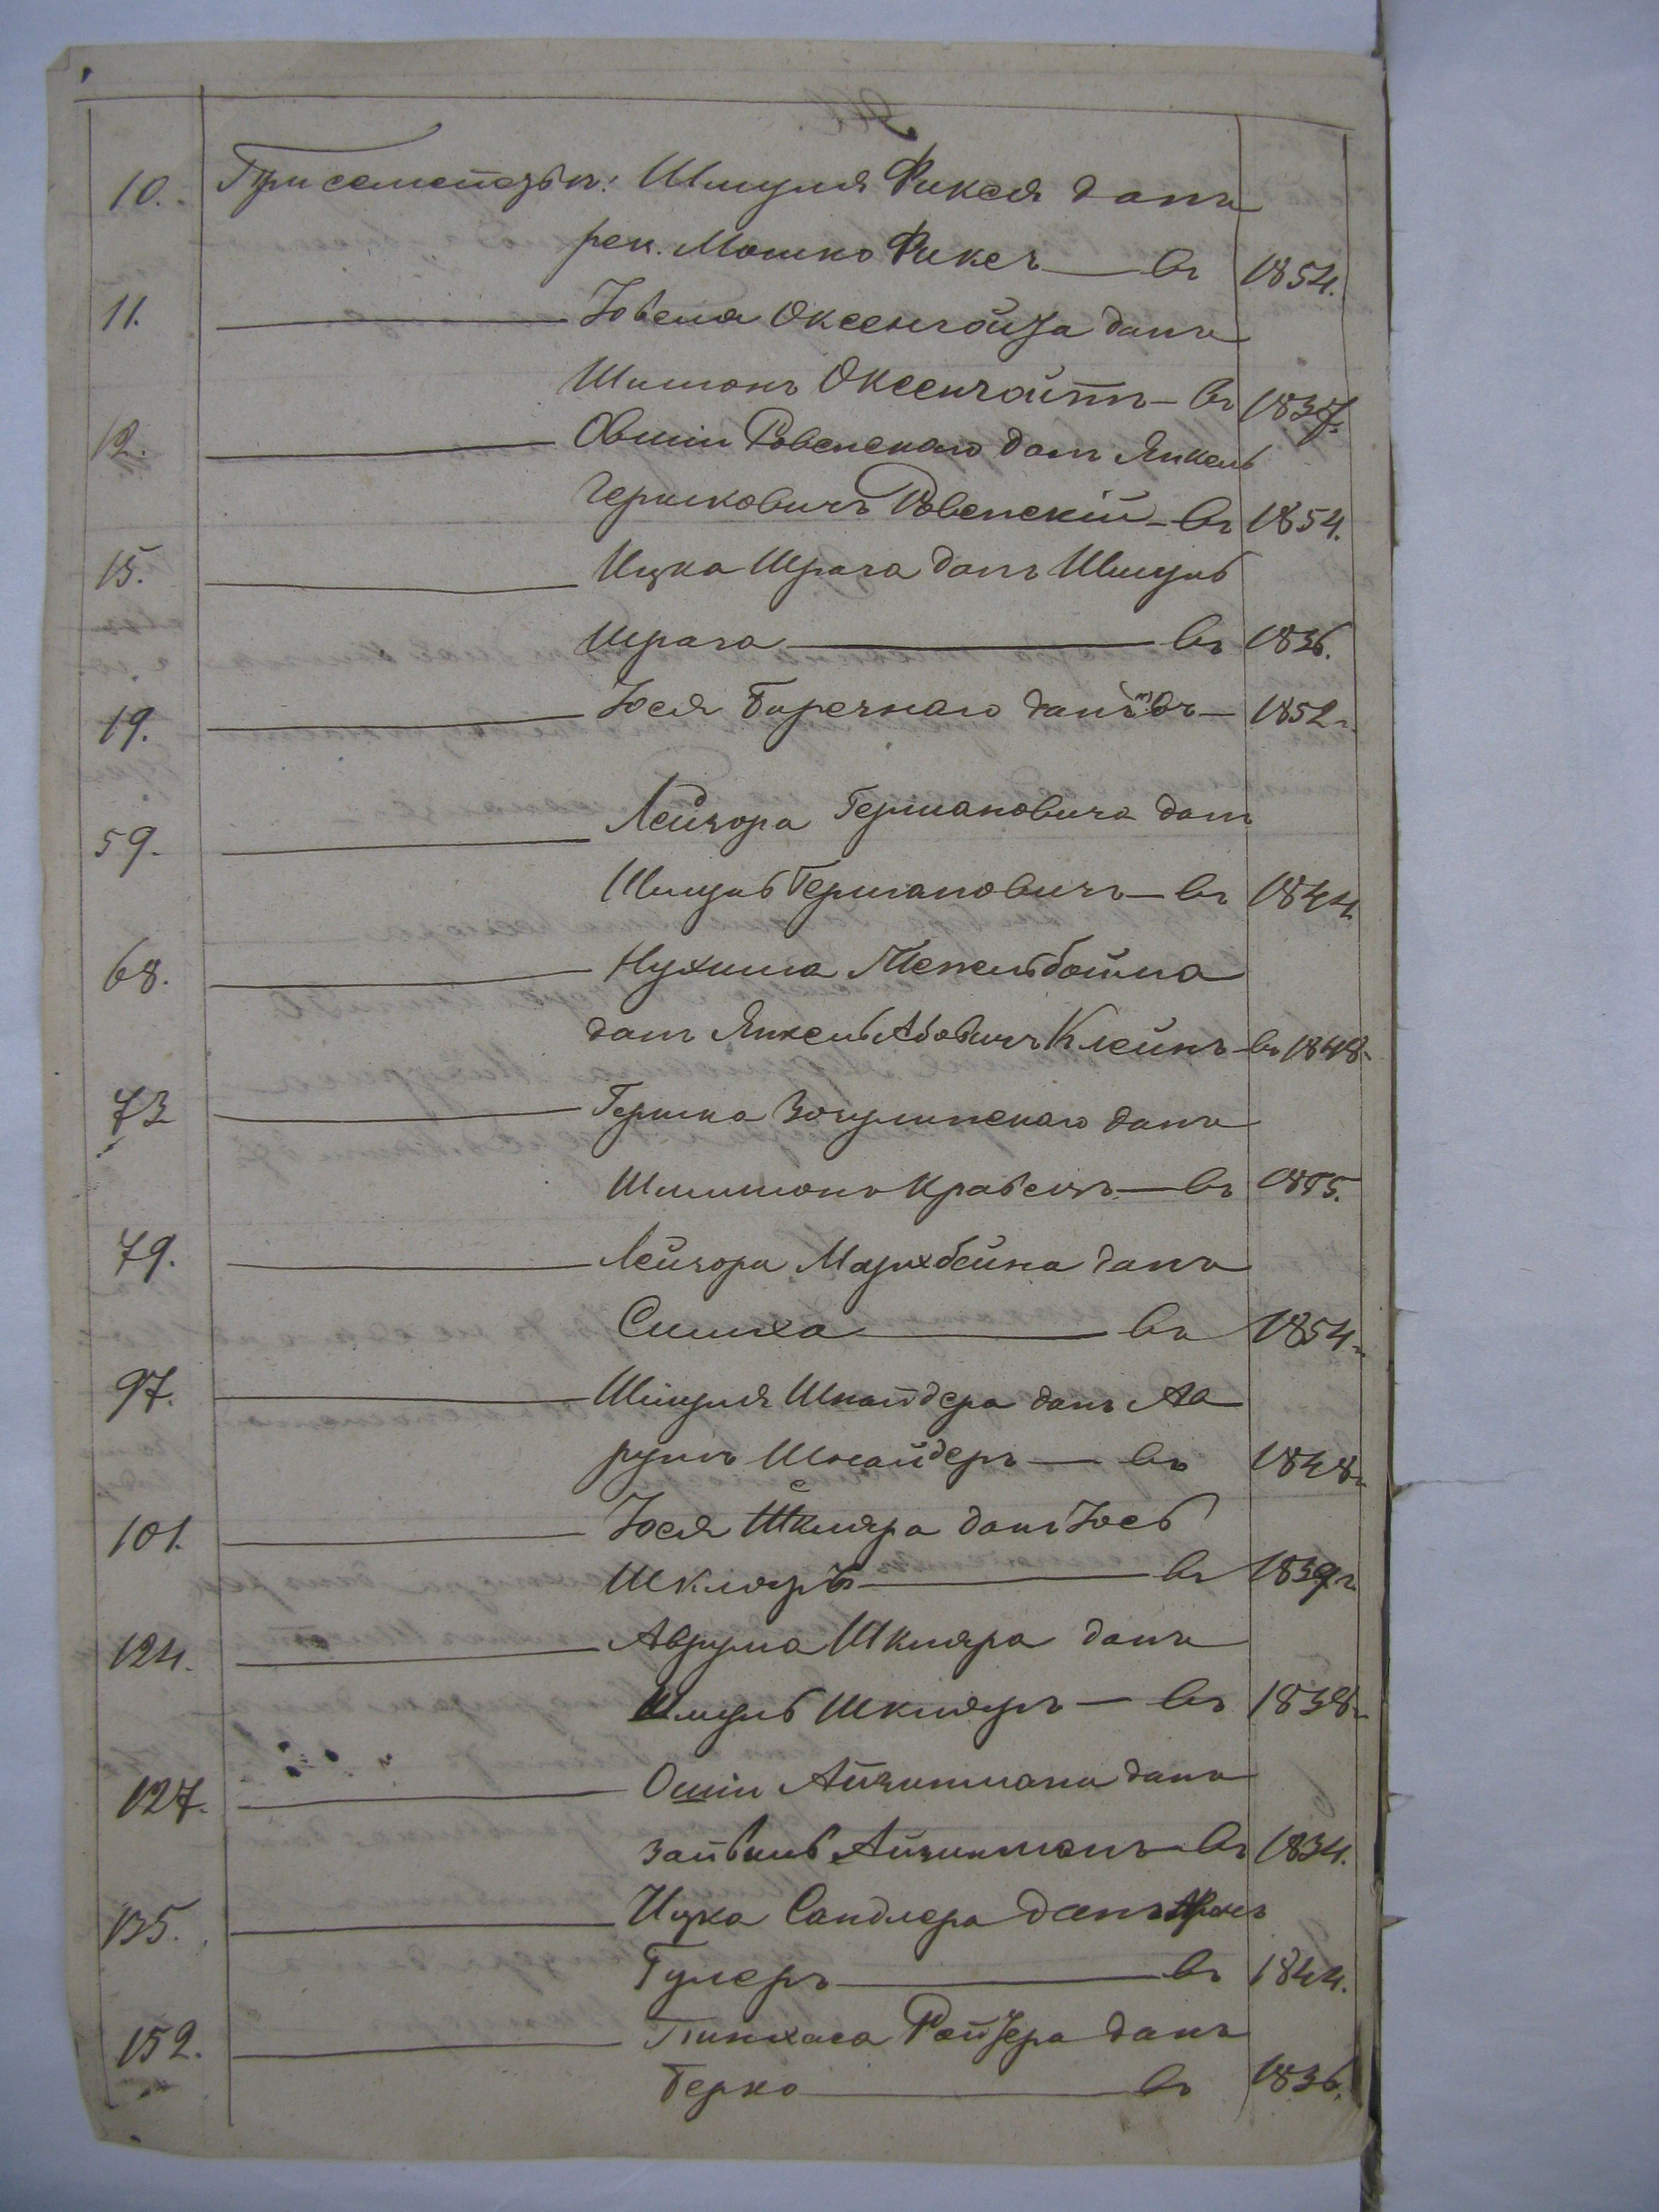 10. При семействѣ: Шмуля Фикся данъ
рек. Мошко Фиксъ — въ 1854.
11. Іовеля Оксенгойза данъ
Шимонъ Оксенгойтъ — въ 1837.
12. Овшіи Ровенскаго данъ Янкель
Гершковичъ Ровенскій — въ 1854.
15. Ицка Шрага данъ Шмуль
Шрага — въ 1836.
19. Іося Боречнаго данъ въ — 1852 г.
59. Лейзора Германовича данъ
Шмуль Германовичъ — въ 1844
68. Нухима Тепельбойма
данъ Янкель Абовичъ Клейнъ — въ 1848.
73 Гершка Зозулинскаго данъ
Шимшонъ Кравецъ — въ 1855.
79. Лейзора Мархбейна данъ
Симха — въ 1854 г.
97. Шмуля Шнайдера данъ Ав
румъ Шнайдеръ — въ 1848 г.
101. Іося Шкляра данъ Іось
Шкляръ — въ 1839 г.
124. Аврума Шкляра данъ
Шмуль Шкляръ — въ 1838 г.
127. Ошіи Айзинмана данъ
Зайвиль Айзинманъ — въ 1834.
135. Ицка Сандлера данъ
Гулеръ — въ 1844.
152. Пинхаса Ройзера данъ
Берко — въ 1836.